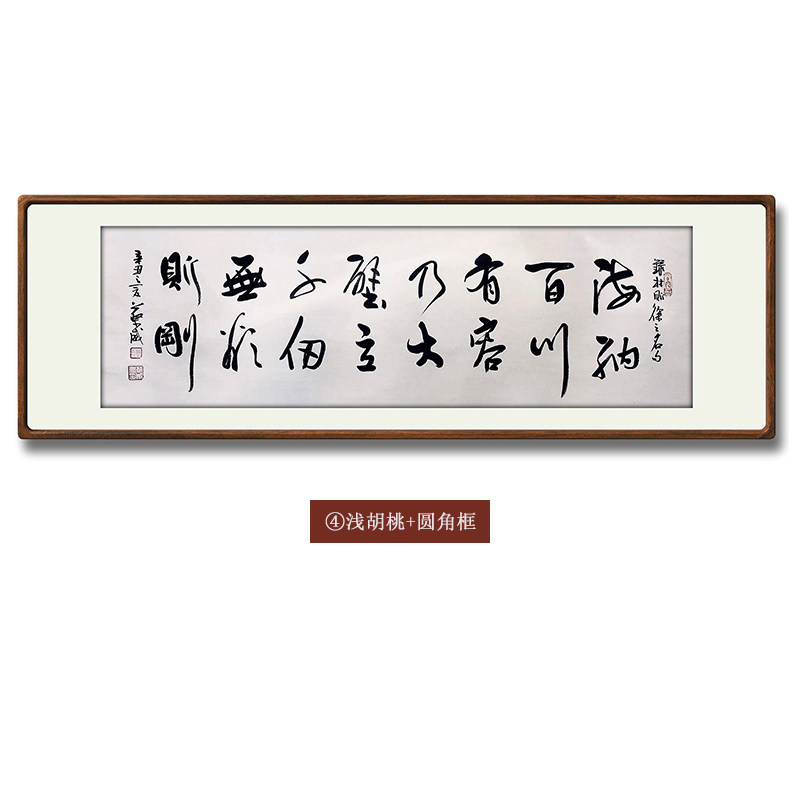 錄林則徐之名句
海納
百川
有容
乃大
壁立
千仞
無欲
則剛
辛丑之夏
④浅胡桃+圆角框